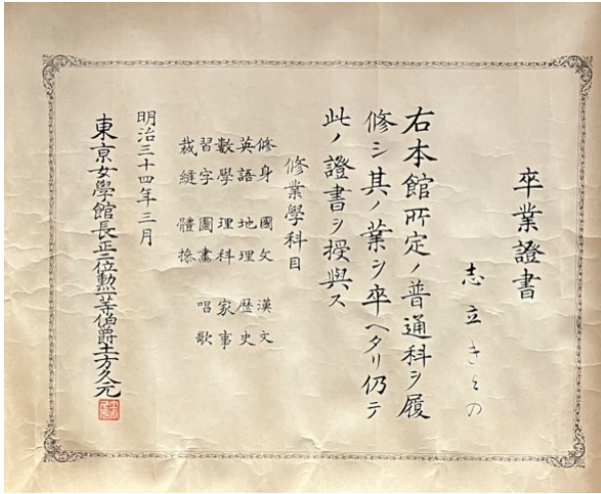 卒業證書
志立きくの
右本館所定ノ普通科ヲ履
修シ其ノ業ヲ卒ヘタリ仍テ
此ノ證書ヲ授與ス
修業學科目
修身 國文 漢文
英語 地理 歴史
數學 理科 家事
習字 圖畵 唱歌
裁縫 體操
明治三十四年三月
東京女學館長正二位勲一等伯爵土方久元